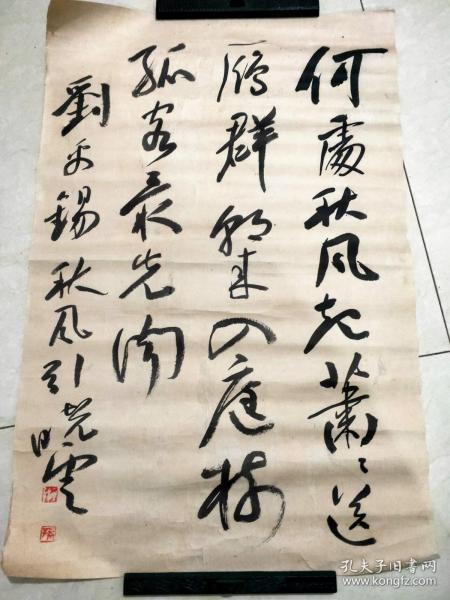 何處秋风起蕭〻送
雁群朝来入庭樹
孤客最先闻
劉禹錫秋风引 晓雲
孔夫子旧书网
www.kongfz.com